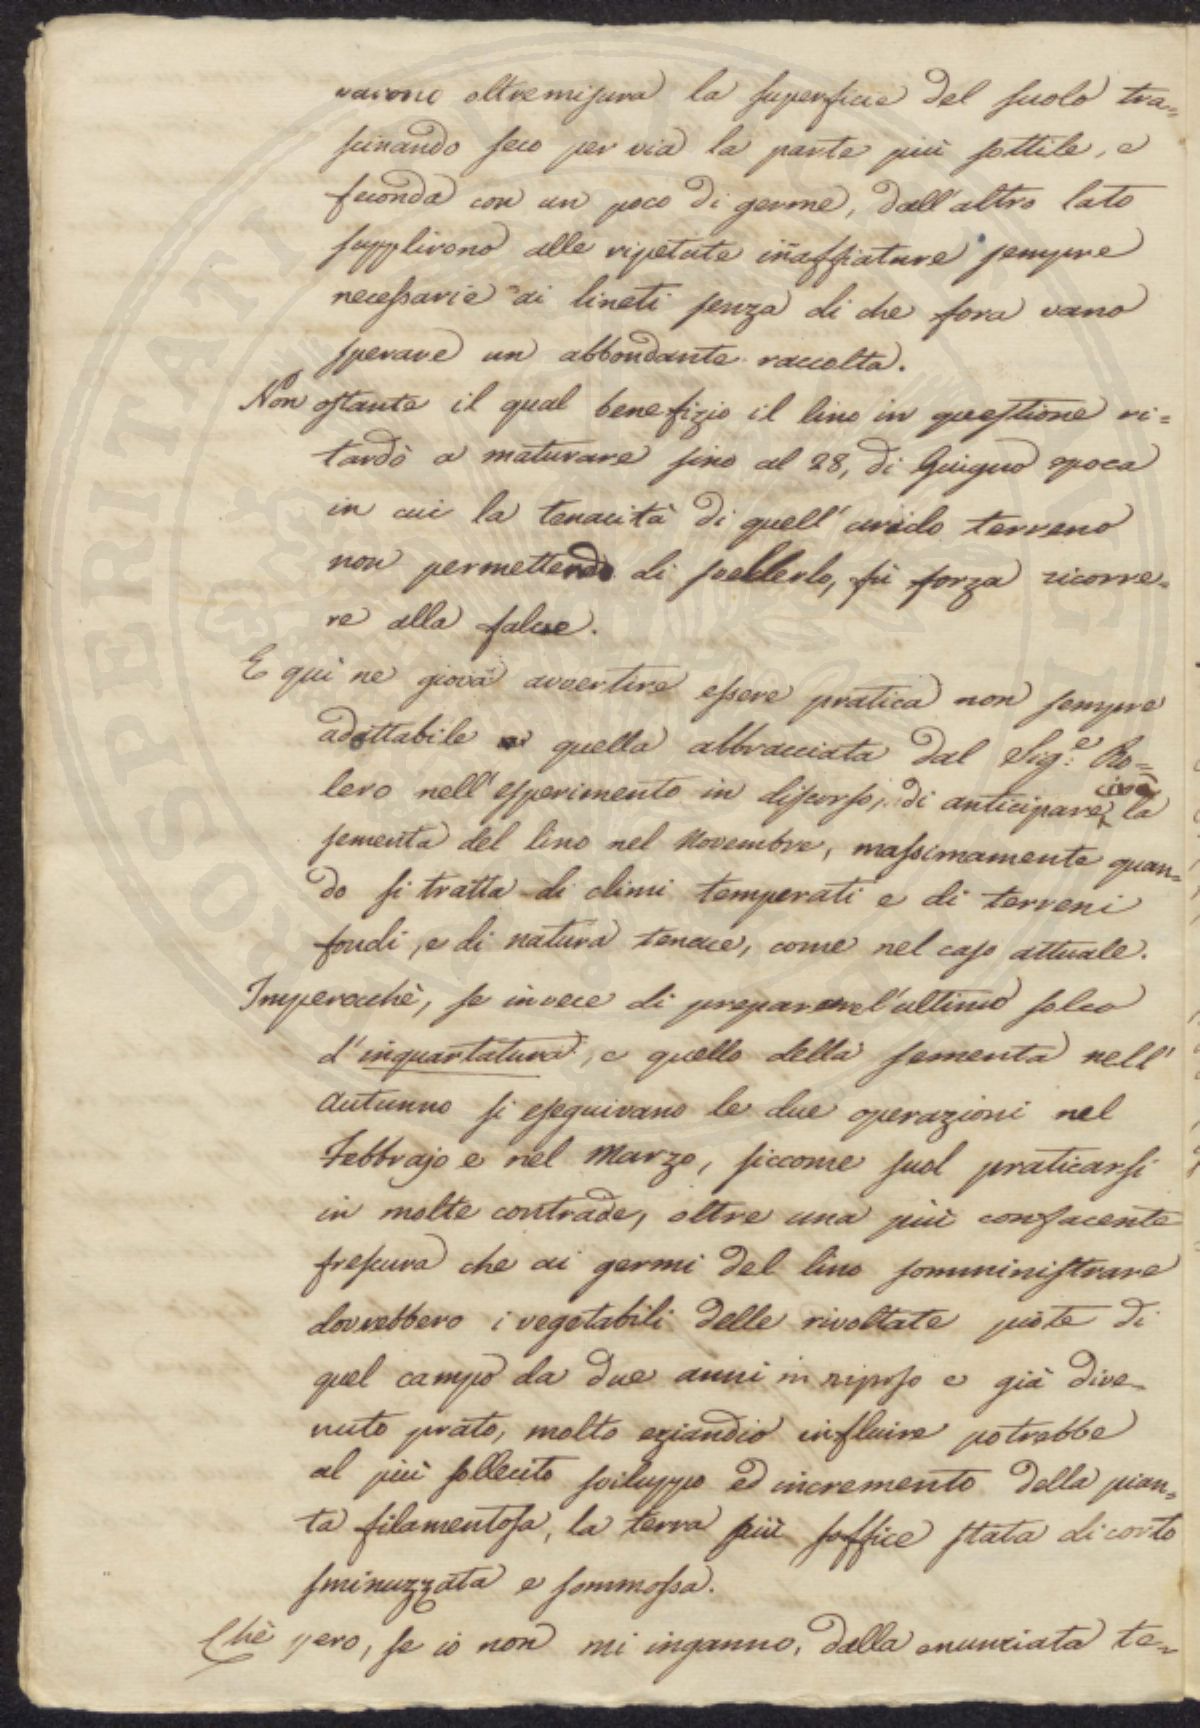 varono oltremisura la superficie del suolo tra=
scinando seco per via la parte più sottile, e
feconda con un poco di germe, dall'altro lato
supplirono alle ripetute iñaffiature sempre
necessarie ai lineti senza di che fora vano
sperare un abbondante raccolta.
Non ostante il qual benefizio il lino in questione ri=
tardò a maturare sino al 28, di Giugno epoca
in cui la tenacità di quell'arido terreno
non permettendo di svellerlo, fù forza ricorre=
re alla falce.
E quì ne giova avvertire essere pratica non sempre
adattabile quella abbracciata dal Sig.e Ro=
lero nell'esperimento in discorso, di anticipare cioè la
sementa del lino nel Novembre, massimamente quan=
do si tratta di climi temperati e di terreni
fondi, e di natura tenace, come nel caso attuale.
Imperocchè, se invece di preparare l'ultimo solco
d'inquartatura, e quello della sementa nell'
Autunno si eseguivano le due operazioni nel
Febbrajo e nel Marzo, siccome suol praticarsi
in molte contrade, oltre una più confacente
frescura che ai germi del lino somministrare
dovrebbero i vegetabili delle rivoltate piote di
quel campo da due anni in riposo e già dive=
nuto prato, molto eziandio influire potrebbe
al più sollecito sviluppo ed incremento della pian=
ta filamentosa, la terra più soffice stata di corto
sminuzzata e sommossa.
Chè pero, se io non mi inganno, dalla enunziata te=
SPERITATI